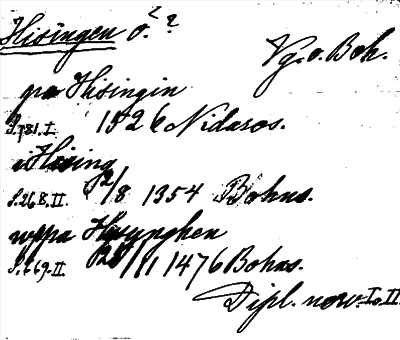 Hisingen ö. ?
Vg. o. Boh.
pa Hisingin
S. 781. I. 1526 Nidaros.
i Hising
S. 268. II. 12/8 1354 Bohus.
uppa Hisynghen
S. 769-II 28/11 1476 Bohus.
Dipl. norv. I o. II.